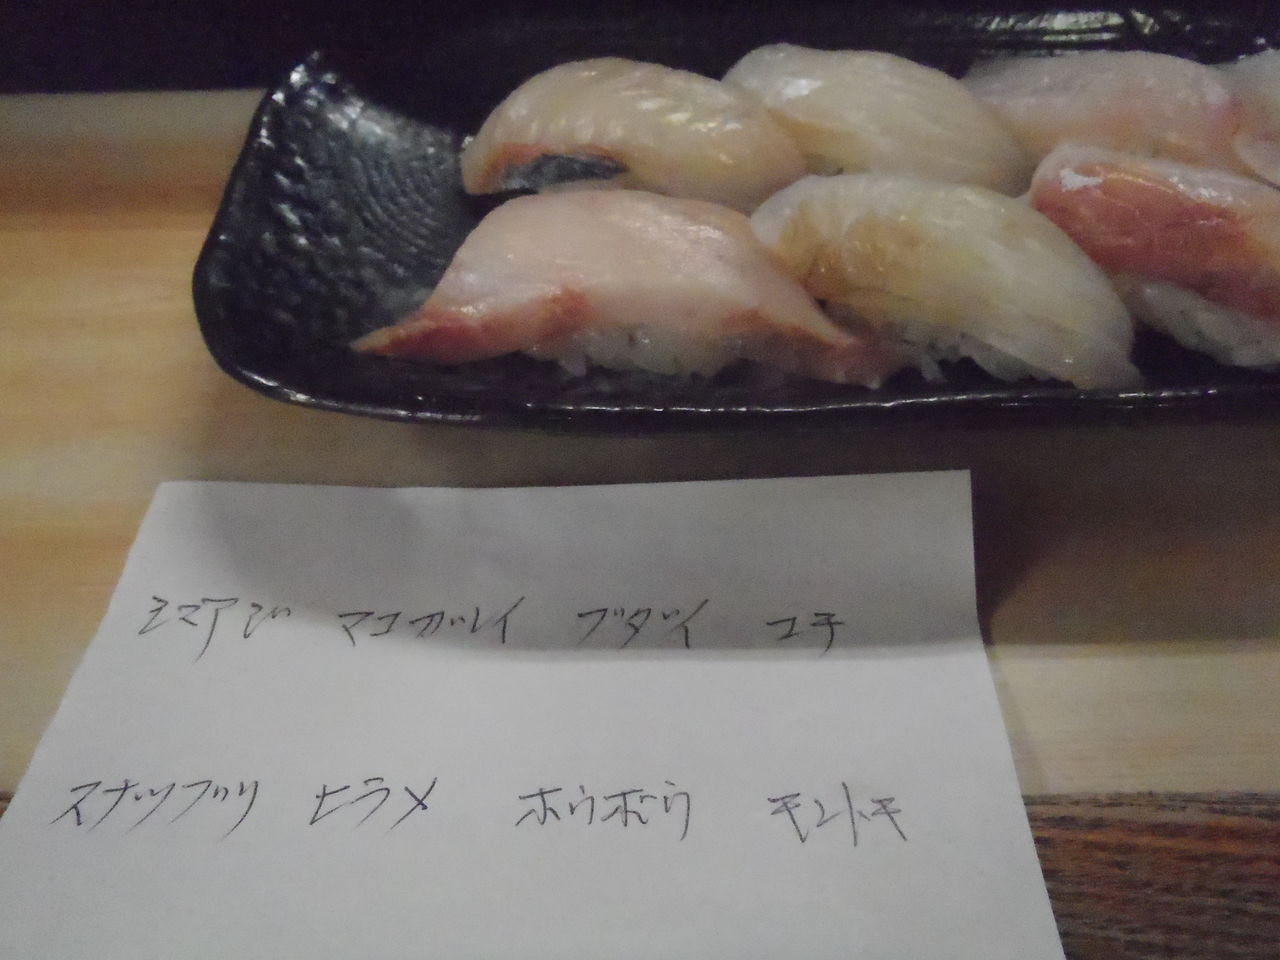 シマアジ マコガレイ ブダイ コチ
スナツブリ ヒラメ ホウボウ モントキ